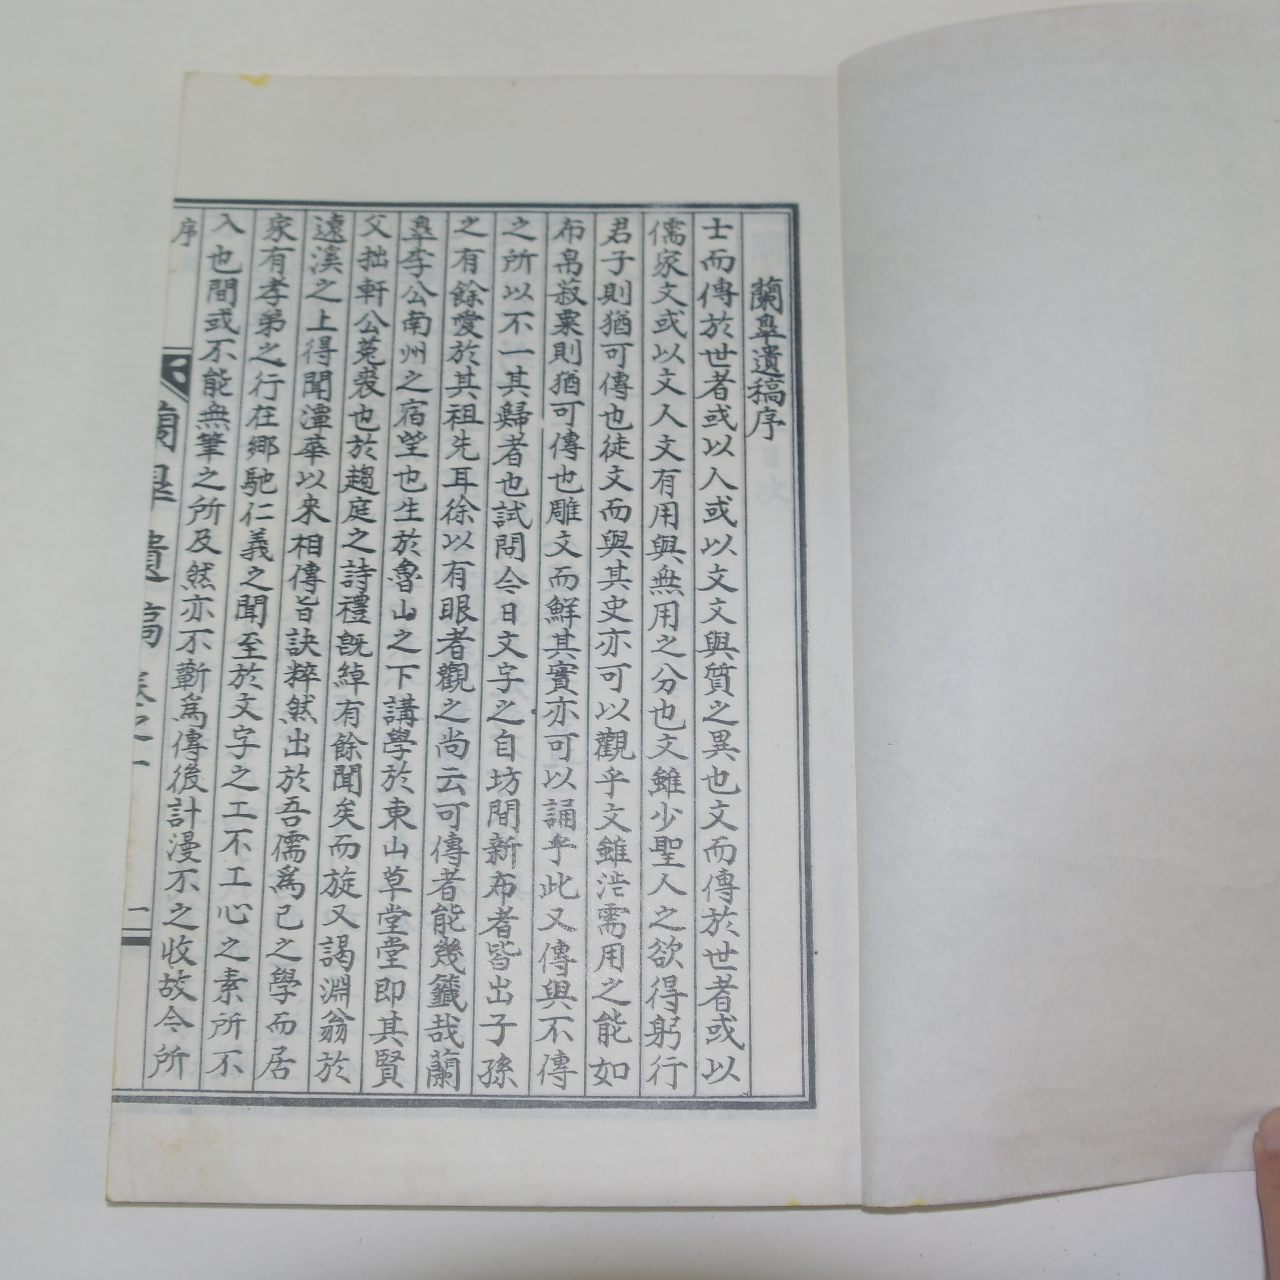 蘭皐遺稿序
士而傳於世者或以人或以文文與質之異也文而傳於世者或以
儒家文或以文人文有用與無用之分也文雖少聖人之欲得躬行
君子則猶可傳也徒文而與其史亦可以觀乎文雖浩需用之能如
布帛菽粟則猶可傳也雕文而鮮其實亦可以誦乎此又傳與不傳
之所以不一其歸者也試問今日文字之自坊間新布者皆出子孫
之有餘愛於其祖先耳徐以有眼者觀之尚云可傳者能幾籤哉蘭
皐李公南州之宿望也生於魯山之下講學於東山草堂堂即其賢
父拙軒公菟裘也於趨庭之詩禮旣綽有餘聞矣而旋又謁淵翁於
遠溪之上得聞潭華以來相傳旨訣粹然出於吾儒爲己之學而居
家有孝弟之行在鄉馳仁義之聞至於文字之工不工心之素所不
入也間或不能無筆之所及然亦不蘄爲傳後計漫不之收故今所
序
蘭皐遺稿 卷之一
二